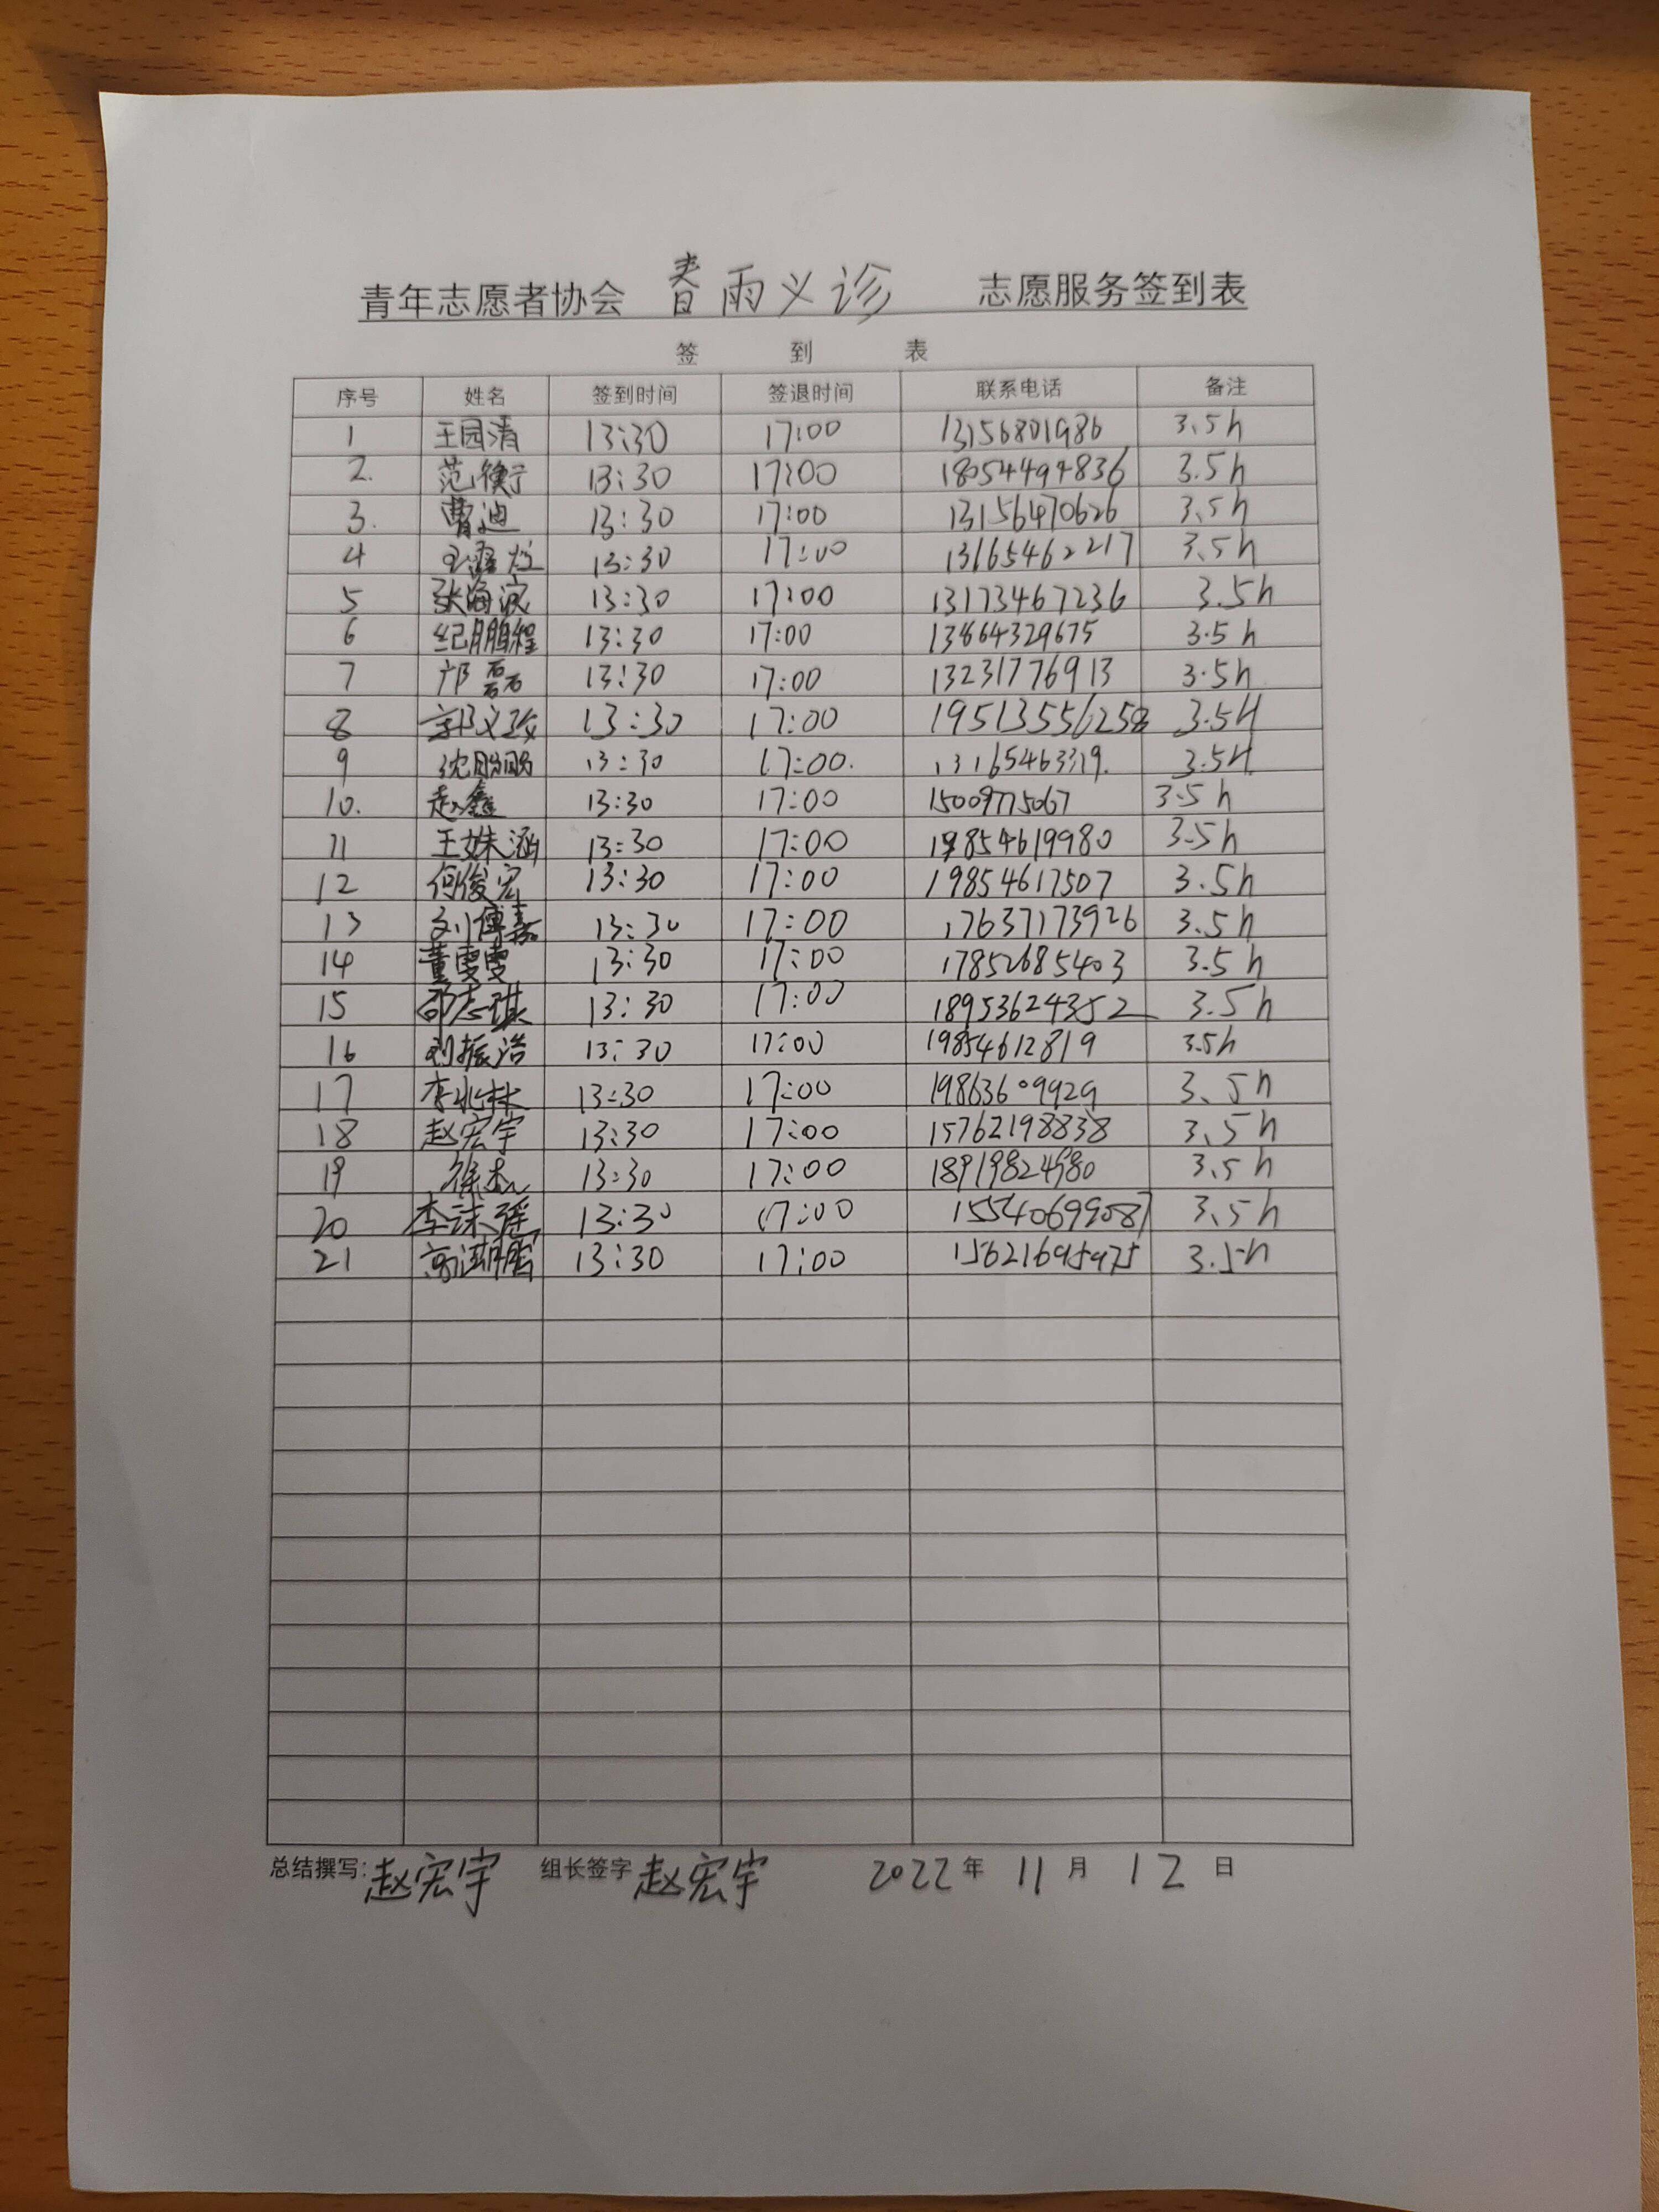 青年志愿者协会 春雨义诊 志愿服务签到表
签 到 表
序号 姓名 签到时间 签退时间 联系电话 备注
1 王园清 13:30 17:00 13156801986 3.5h
2. 范衡宁 13:30 17:00 18054494836 3.5h
3. 曹迪 13:30 17:00 13156470626 3.5h
4 13:30 17:00 13165462217 3.5h
5 张海波 13:30 17:00 13173467236 3.5h
6 纪鹏程 13:30 17:00 13864329675 3.5h
7 邝磊 13:30 17:00 13231776913 3.5h
8 13:30 17:00 3.5H
9 13:30 17:00. 3.5H.
10. 赵鑫 13:30 17:00 15009775067 3.5h
11 王姝涵 13:30 17:00 19854619980 3.5h
12 何俊宏 13:30 17:00 19854617507 3.5h
13 刘博嘉 13:30 17:00 17637173926 3.5h
14 董雯雯 13:30 17:00 17852685403 3.5h
15 邵志琪 13:30 17:00 18953624352 3.5h
16 刘振浩 13:30 17:00 19854612819 3.5h
17 李兆林 13:30 17:00 19863609929 3.5h
18 赵宏宇 13:30 17:00 15762198838 3.5h
19 徐杰 13:30 17:00 18919824980 3.5h
20 13:30 17:00 15540699087 3.5h
21 13:30 17:00 15621695975 3.5h
总结撰写:赵宏宇 组长签字 赵宏宇 2022 年 11 月 12 日